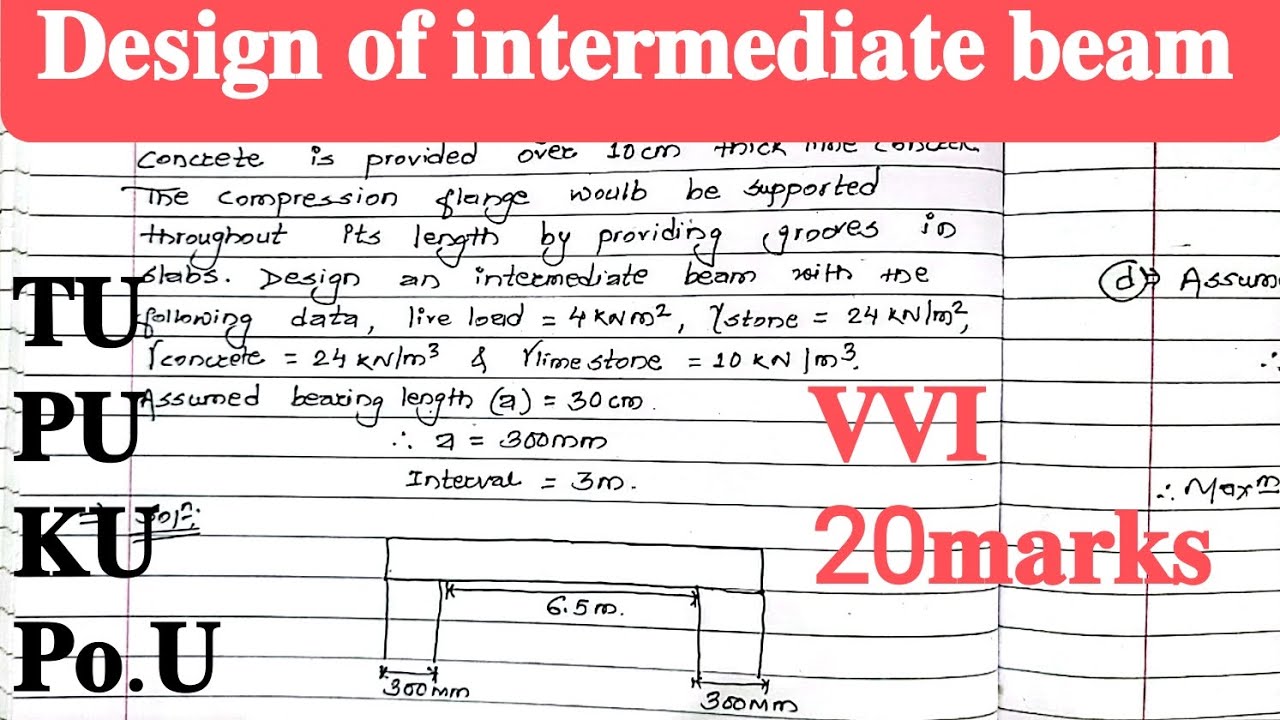 Design of intermediate beam
concrete is provided over 10cm thick lime concrete
The compression flange would be supported
throughout its length by providing grooves in
slabs. Design an intermediate beam with the
following data, live load = 4 kNm², γstone = 24 kN/m²,
γconcrete = 24 kN/m³ & γlimestone = 10 kN/m³.
Assumed bearing length (a) = 30cm.
∴ a = 300mm
Interval = 3m.
⇒ Solⁿ:
6.5m.
300mm
300mm
TU
PU
KU
Po.U
VVI
20marks
(d)⇒ Assum
∴
∴ Maxᵐ